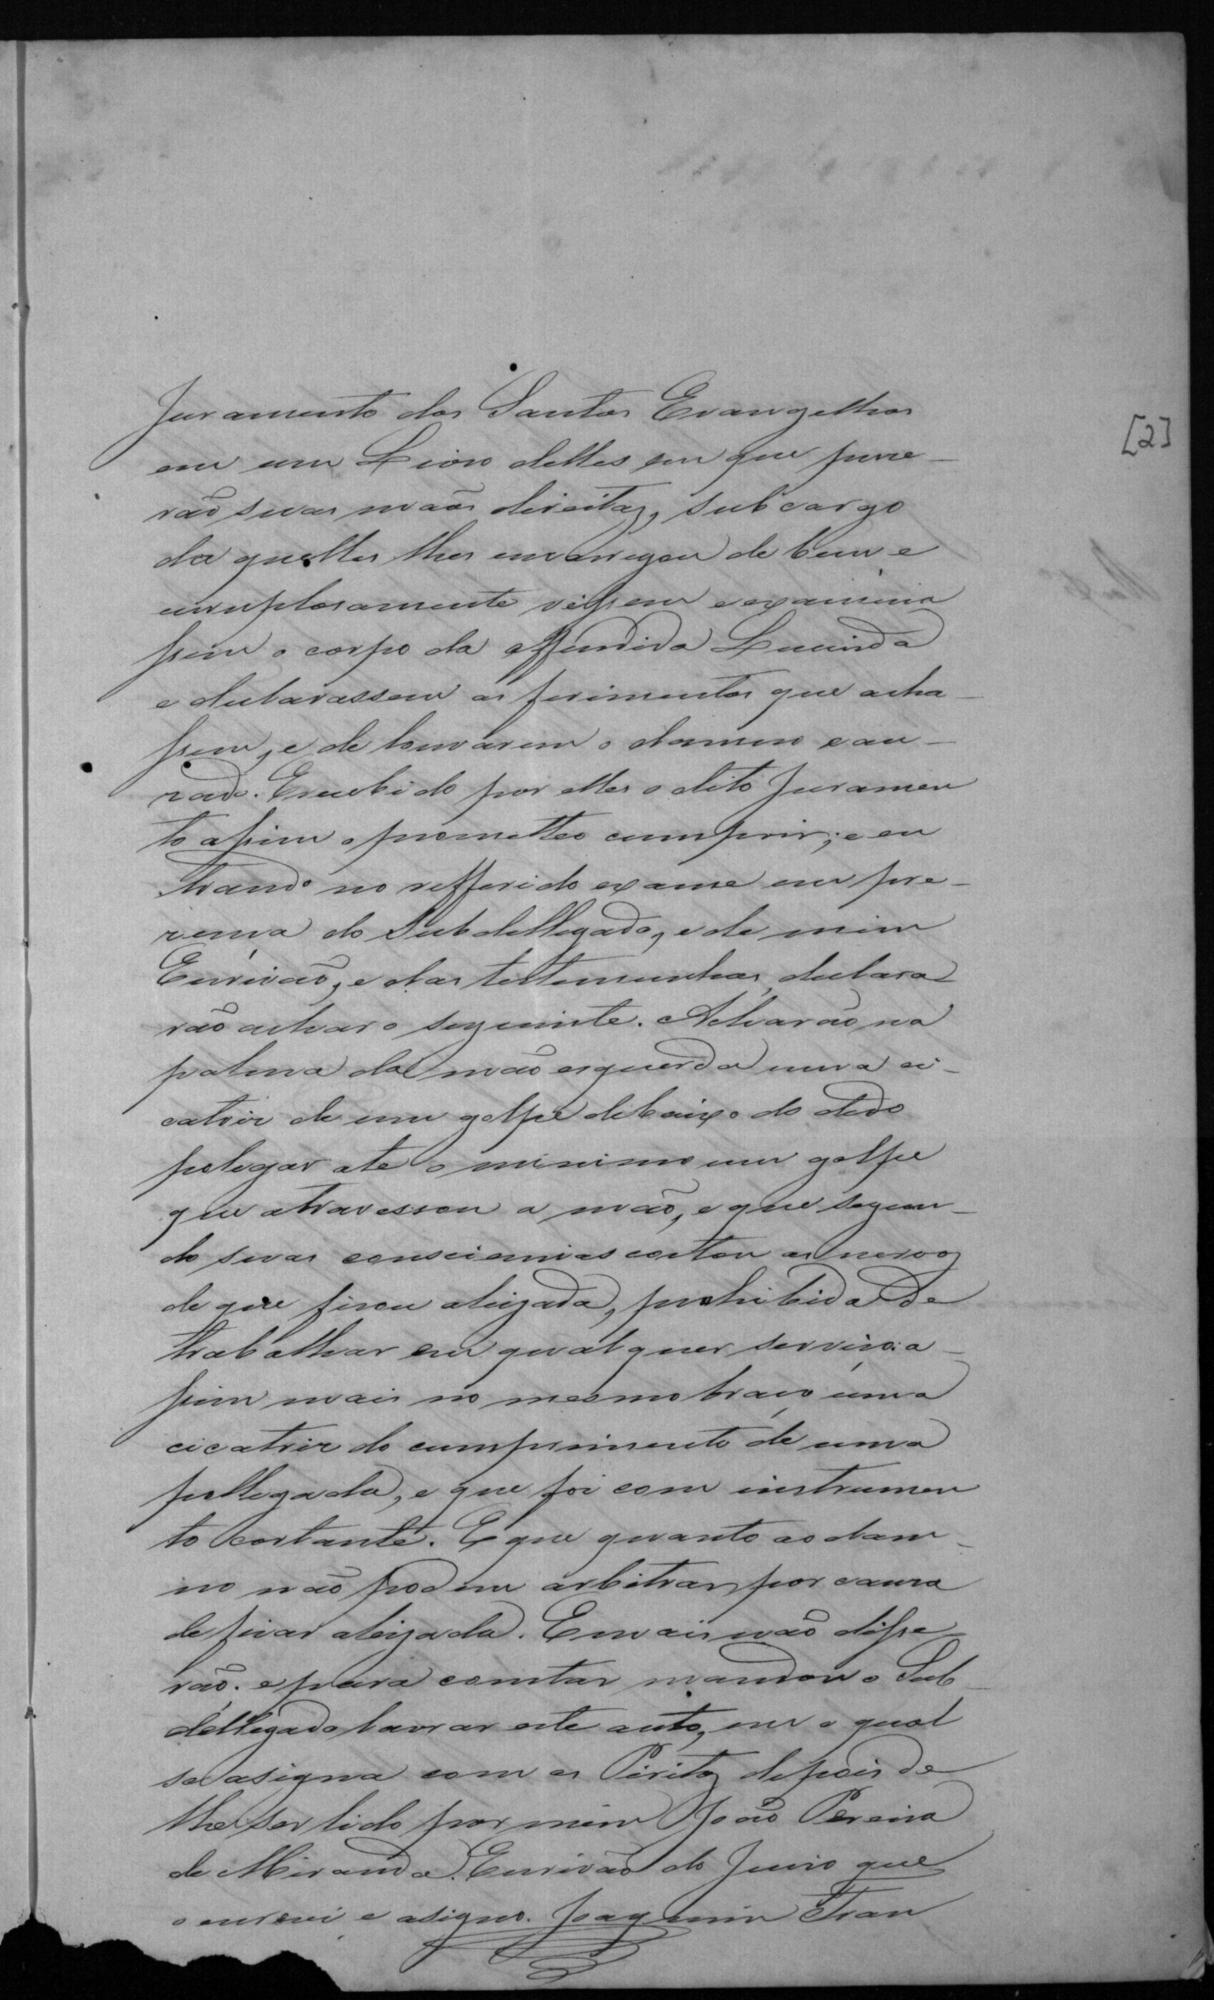 Juramento dos Santos Evangelhos
em um Livro delles em que puze-
rão suas mãos direitas, sub cargo
da quelles lhes encarregou de bem e
escruplosamente vissem e examina
ssem o corpo da offendida Lucinda
e declarassem os ferimentos que acha-
ssem, e de louvarem o damno cau-
zado. E recebido por elles o dito Juramen
to assim o prometteo cumprir; e en
trando no refferido exame em pre-
zença do Subdellegado, e de mim
Escrivão, e das testemunhas, declara
rão achar o seguinte. Acharão na
palma da mão esquerda uma ci-
catriz de um golpe debaixo do dedo
polegar ate o minimo um golpe
que atravessou a mão, e que segun-
do suas consciencias cortou os nervos
de que ficou aleijada, prohibida de
trabalhar em qualquer serviço: a-
ssim mais no mesmo braço uma
cicatriz do cumprimento de uma
pollegada, e que foi com instrumen
to cortante. E que quanto ao dam-
no não podem arbitrar por cauza
de ficar aleijada. E mais não disse-
rão. e para constar mandou o Sub-
dellegado lavrar este auto, em o qual
se asigna com os Peritos depois de
lhe ser lido por mim João Pereira
de Miranda Escrivão do Juizo que
o escrevi e asigno. Joaquim Fran
[2]